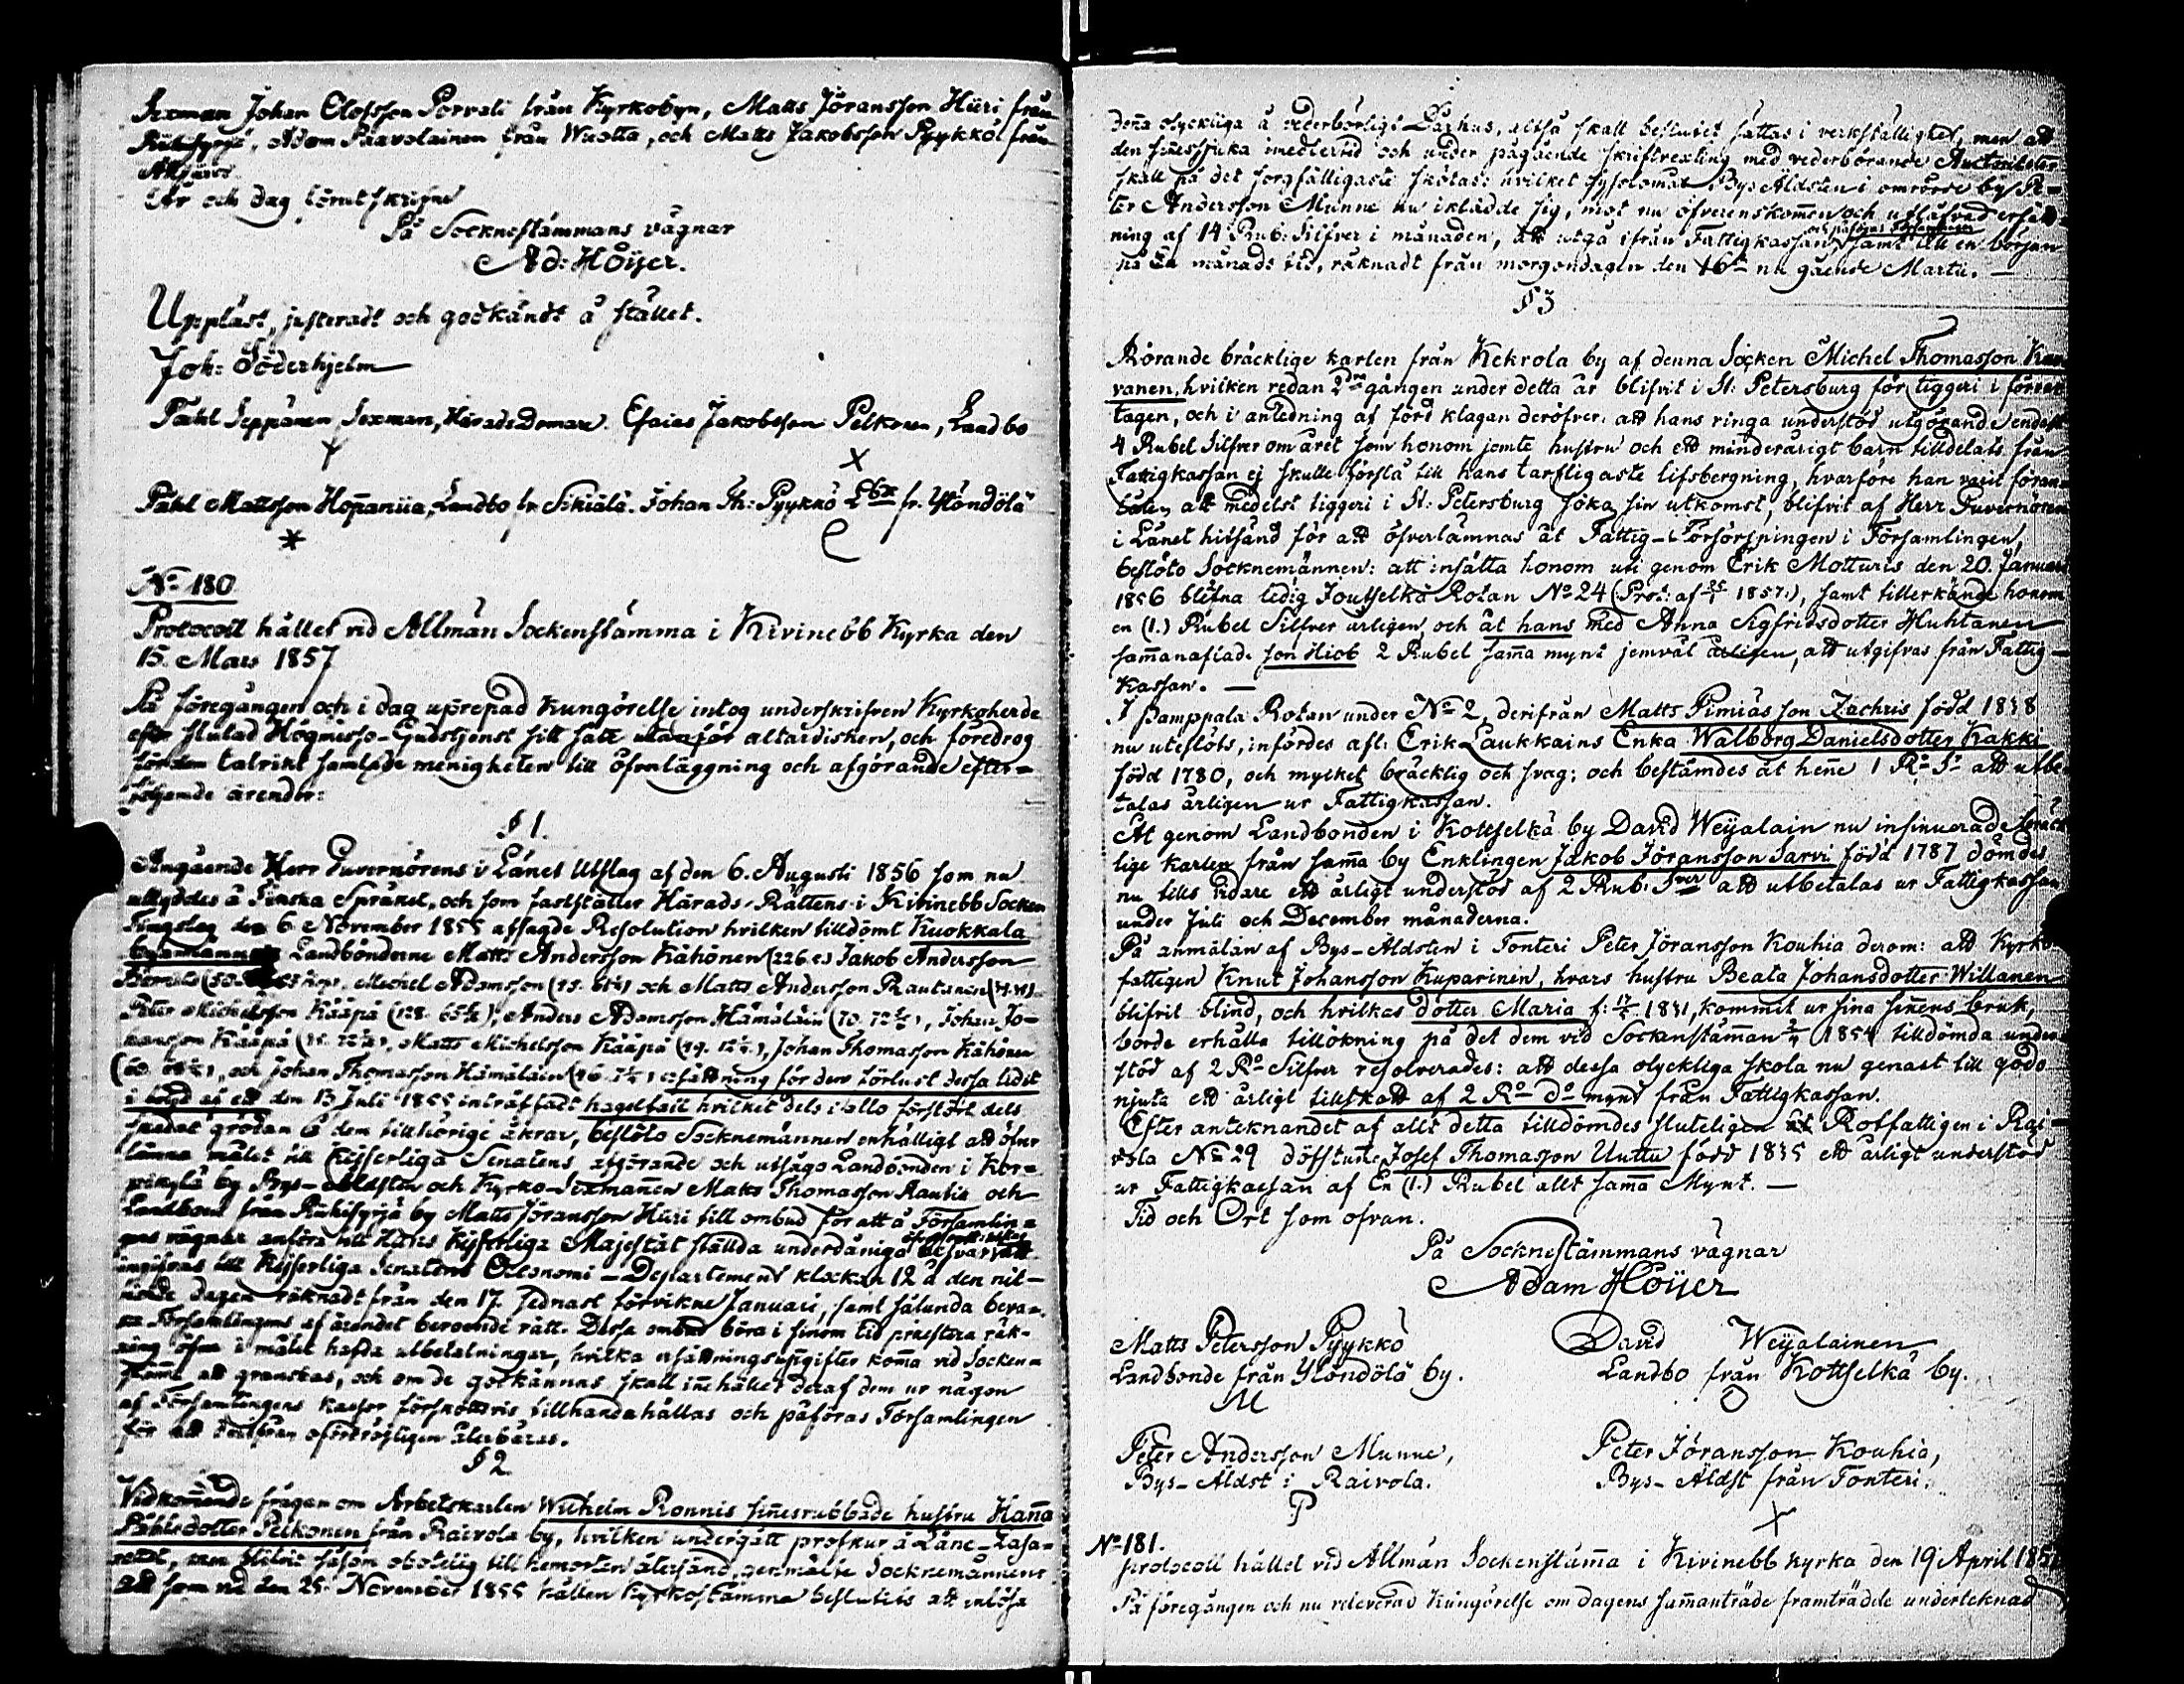 Sexman Johan Olofsson Porvali från Kyrkobyn, Matts Jöransson Hüri från
Adam Paavolainen från Wuotta, och Matts Jakobsson Pyykkö från
År och dag förutskrifne
På Socknestämmans vägnar
Ad: Höijer.
Uppläst, justeradt och godkändt å stället.
Joh: Söderhjelm
Påhl Seppänen Sexman, HäradsDomare. Esaias Jakobsson Pelkonen, Landbo
Påhl Mattsson Hopaniia, Landbo fr. Sikiälä. Johan Th: Pyykkö fr. Ylöndölä
No 180
Protocoll hållet vid Allmän Sockenstämma i Kivinebb Kyrka den
15. Mars 1857
På föregången och i dag uprepad Kungörelse intog underskrifven Kyrkoherde
efter slutad Högmässo-Gudstjenst sitt säte utanför altardisken, och föredrog
för den talrikt samlade menigheten till öfverläggning och afgörande efter=
följande ärender:
§ 1.
Angående Herr Guvernörens i Länet Utslag af den 6. Augusti 1856 som nu
uttyddes å Finska Språket, och som fastställer Härads-Rättens i Kivinebb Socken
Tingslag den 6 November 1855 afsagde Resolution hvilken tilldömt Kuokkala
Landbönderne Matts Andersson Kähönen (226. c.) Jakob Andersson
Michel Adamsson och Matts Andersson Rautanen
Peter Michelsson Kääpä (128. 65), Anders Adamsson Hämäläin (70. 72), Johan Jo=
hansson Kääpä, Matts Michelsson Kääpä, Johan Thomasson Kähönen
och Johan Thomasson Hämäläin ersättning för den förlust dessa lidit
i följd af ett den 13 Juli 1855 inträffadt hagelfall hvilket dels i allo förstört dels
skadat grödan å dem tillhörige åkrar, beslöto Socknemännen enhälligt att öfver
lämna målet till Kejserliga Senatens afgörande och utsågo Landbonden i Kor=
pikylä by Bys-Äldsten och Kyrko-Sexmannen Matts Thomasson Rautia och
Landbon från Riihisyrjä by Matts Jöransson Hüri till ombud för att å Församlin=
gens vägnar anföra till Hans Kejserliga Majestät ställda underdåniga besvär att
ingifvas till Kejserliga Senatens Oeconomi-Departement klockan 12 å den nit=
tionde dagen räknadt från den 17. sednast förvikne Januari, samt sålunda beva=
ra Församlingens af ärendet beroende rätt. Dessa ombud böra i sinom tid præstera räk=
ning öfver i målet hafda utbetalningar, hvilka ersättningsuppgifter koma vid Socken=
stämma att granskas, och om de godkännas skall inehållet deraf dem ur någon
af Församlingens kassor förskottsvis tillhandahållas och påföras Församlingen
för att derifrån oförtröjligen återbäras.
§ 2
Vidkommande frågan om Arbetskarlen Wilhelm Ronnis sinesrubbade hustru Hanna
Påhlsdotter Pelkonen från Raivola by, hvilken undergått profkur å Läne-Lasa=
rettet, men blifvit såsom obotelig till hemorten återsänd, genmälte Socknemännen:
att som vid den 25. November 1855 hållen Kyrkostämma beslutits att inlösa
denna olyckliga å vederbörligt Dårhus, altså skall beslutet sättas i verkställighet, men att
den sinessjuka medlertid och under pågående skriftvexling med vederbörande Auctoriteter
skall på det sorgfälligaste skötas: hvilket sysslomål Bys Äldsten i omrörde by Pe=
ter Andersson Munne nu iklädde sig, mot nu öfverenskommen och utfäfvad ersätt=
ning af 14 Rub: Silfver i månaden, att utgå ifrån Fattigkassan och påföras Församlingen samt till en början
på En månads tid, räknadt från morgondagen den 16de nu gående Martii. —
§ 3
Rörande bräcklige karlen från Kekrola by af denna Socken Michel Thomasson Kar
vanen, hvilken redan 2dra gången under detta år blifvit i St: Petersburg för tiggeri i förvar
tagen, och i anledning af förd klagan deröfver, att hans ringa understöd utgörande endast
4 Rubel Silfver om året som honom jemte hustru och ett minderårigt barn tilldelats från
Fattigkassan ej skulle förslå till hans tarfligaste lifsbergning, hvarföre han varit föran=
låten att medelst tiggeri i St: Petersburg söka sin utkomst, blifvit af Herr Guvernören
i Länet hitsänd för att öfverlämnas åt Fattig-Försörjningen i Församlingen,
beslöto Socknemännen: att insätta honom uti genom Erik Motturis den 20. Januari
1856 blefna ledig Joutselkä Rotan No 24 (Prot: af 25/1 1857.), samt tillerkände honom
en (1.) Rubel Silfver årligen, och åt hans med Anna Sigfridsdotter Huhtanen
sammanaflade son Hiob 2 Rubel samma mynt jemväl årligen, att utgifvas från Fattig—
Kassan. —
I Pamppala Rotan under No 2, derifrån Matts Pimiäs son Zachris född 1838
nu uteslöts, infördes afl: Erik Laukkains Enka Walborg Danielsdotter Kakki
född 1780, och mycket bräcklig och svag; och bestämdes åt henne 1 Ro Sr att utbe=
talas årligen ur Fattigkassan.
Åt genom Landbonden i Kottselkä by David Weijalain nu insinuerade bräck
lige karlen från samma by Enklingen Jakob Jöransson Sarvi född 1787 dömdes
nu tills vidare ett årligt understöd af 2 Rub: Sver att utbetalas ur Fattigkassan
under Juli och December månaderna.
På anmälan af Bys-Äldsten i Tonteri Peter Jöransson Kouhia derom: att Kyrko
fattigen Knut Johansson Kuparinen, hvars hustru Beata Johansdotter Willanen
blifvit blind, och hvilkas dotter Maria f: 1831, kommit ur sina sinnens bruk,
borde erhålla tillökning på det dem vid Sockenstämman 1854 tilldömda under
stöd af 2 Ro Silfver resolverades: att dessa olyckliga skola nu genast till godo
njuta ett årligt tillskott af 2 Ro do mynt från Fattigkassan.
Efter anteknandet af allt detta tilldömdes sluteligen åt Rotfattigen i Rai—
vola No 29 döfstume Josef Thomasson Uuttu född 1835 ett årligt understöd
ur Fattigkassan af En (1.) Rubel allt samma Mynt. —
Tid och Ort som ofvan.
På Socknestämmans vägnar
Adam Höijer
Matts Petersson Pyykkö
Landbonde från Ylöndölä by.
M
David Weijalainen
Landbo från Kottselkä by.
O
Peter Andersson Munne,
Bys-Äldst i Raivola.
P
Peter Jöransson Kouhia,
Bys-Äldst från Tonteri.
No 181.
Protocoll hållet vid Allmän Sockenstämma i Kivinebb kyrka den 19 April 185
På föregången och nu releverad Kungörelse om dagens sammanträde framträdde undertecknad